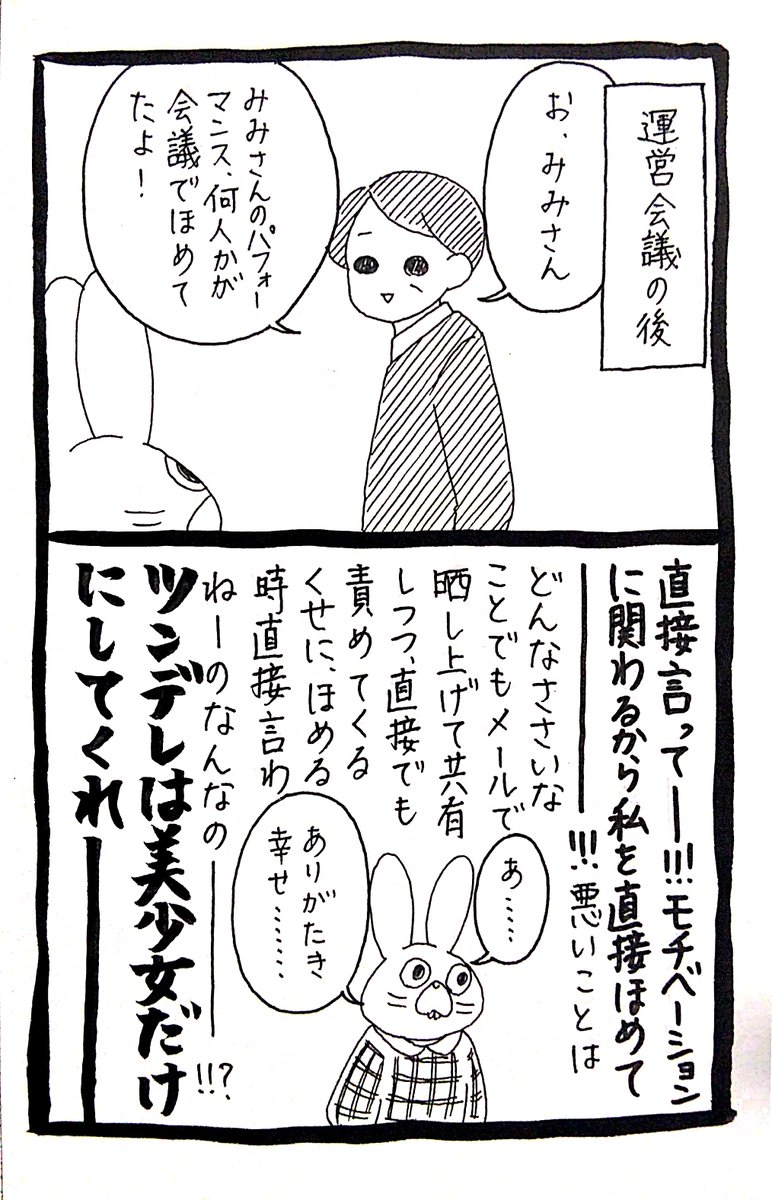 運営会議の後
お、みみさん
みみさんのパフォー
マンス、何人かが
会議でほめて
たよ！
直接言ってー!!!モチベーション
に関わるから私を直接ほめて
ーー!!!悪いことは
どんなささいな
ことでもメールで
晒し上げて共有
しつつ、直接でも
責めてくる
くせに、ほめる
時直接言わ
ねーのなんなのーー!!?
ツンデレは美少女だけ
にしてくれーー
あ……
ありがたき
幸せ………